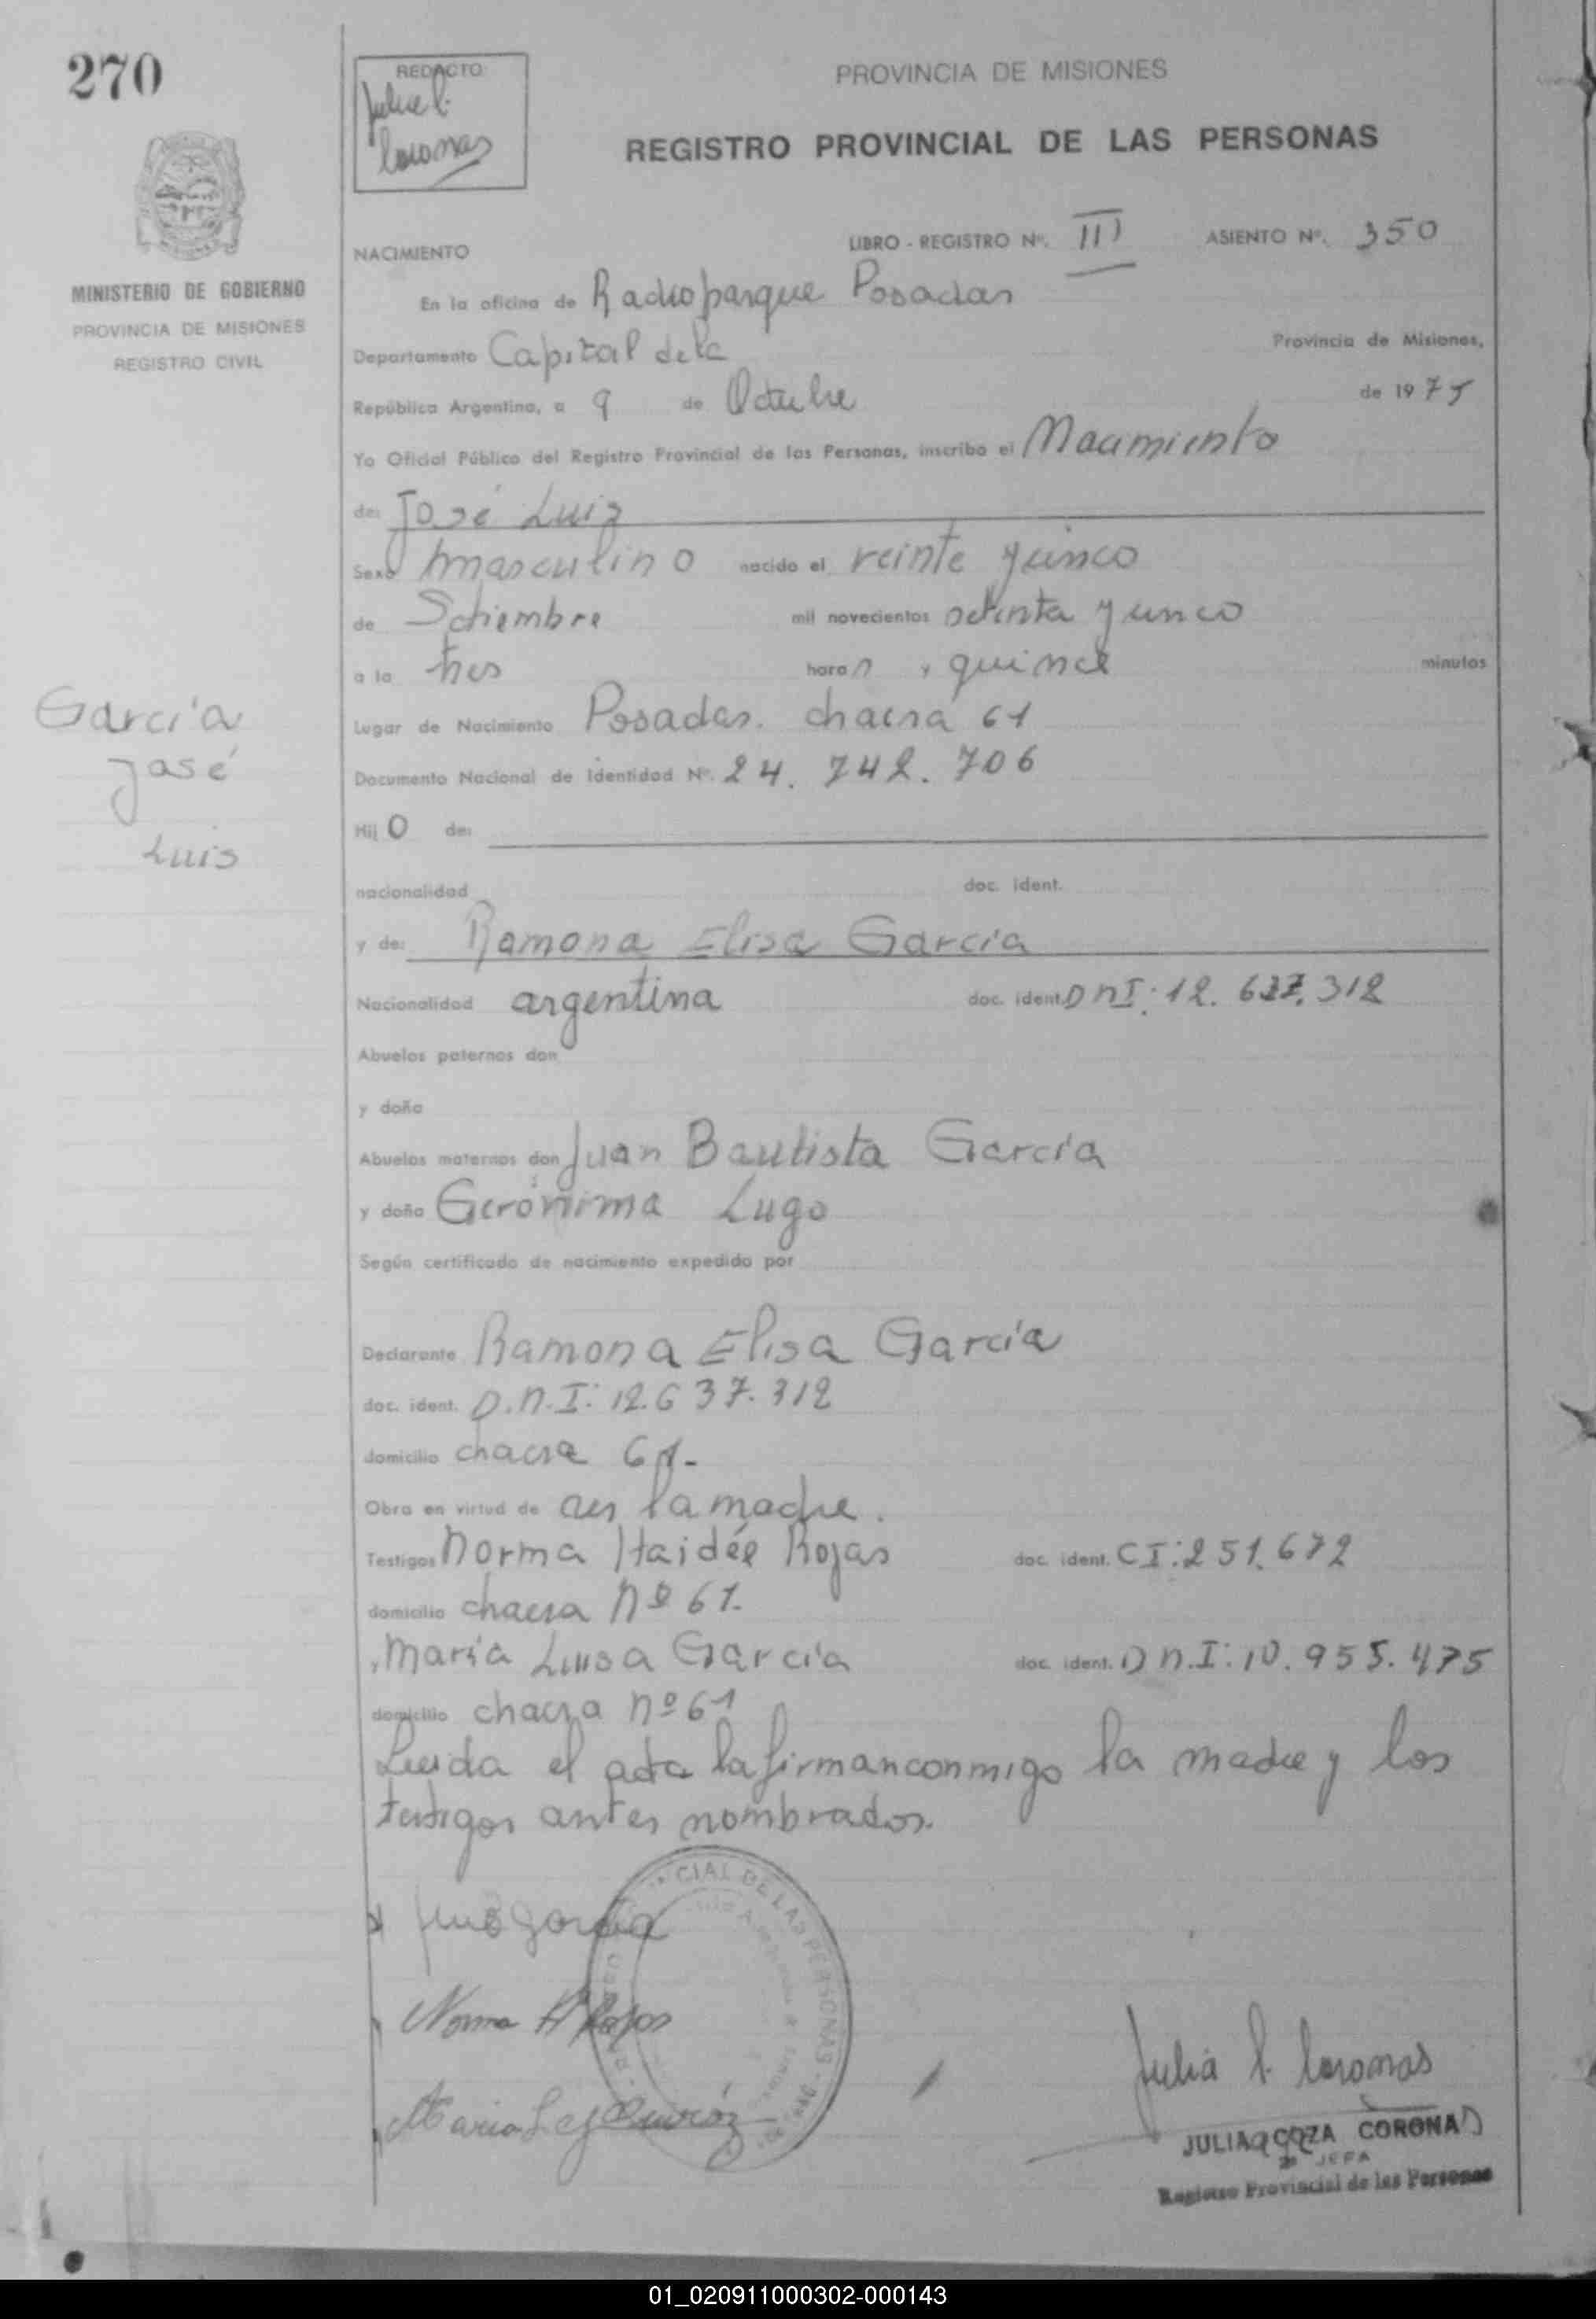 270
REDACTO
Julia C.
Coronas
PROVINCIA DE MISIONES
REGISTRO PROVINCIAL DE LAS PERSONAS
MINISTERIO DE GOBIERNO
PROVINCIA DE MISIONES
REGISTRO CIVIL
NACIMIENTO
LIBRO - REGISTRO Nº. III ASIENTO Nº. 350
En la oficina de Radioparque Posadas
Departamento Capital de la Provincia de Misiones,
República Argentina, a 9 de Octubre de 1975
Yo Oficial Público del Registro Provincial de las Personas, inscribo el Nacimiento
de: José Luis
Sexo masculino nacido el veinte y cinco
de Setiembre mil novecientos setenta y cinco
a la tres horas y quince minutos
Lugar de Nacimiento Posadas. chacra 61
Documento Nacional de Identidad Nº. 24. 742. 706
García
José
Luis
Hijo de:
nacionalidad doc. ident.
y de: Ramona Elisa García
Nacionalidad argentina doc. ident. DNI: 12. 637. 312
Abuelos paternos don
y doña
Abuelos maternos don Juan Bautista García
y doña Gerónima Lugo
Según certificado de nacimiento expedido por
Declarante Ramona Elisa García
doc. ident. D.N.I: 12.637.312
domicilio chacra 61-
Obra en virtud de ser la madre.
Testigos Norma Haidée Rojas doc. ident. CI: 251.672
domicilio chacra Nº 61.
y María Luisa García doc. ident. DN.I: 10.955.475
domicilio chacra nº 61
Leida el acta la firman conmigo la madre y los
testigos antes nombrados.
García
Norma H Rojas
Maria L
CIAL DE LAS PERSONAS
Julia C. Coronas
JULIA COZA CORONAS
JEFA
Registro Provincial de las Personas
01_020911000302-000143